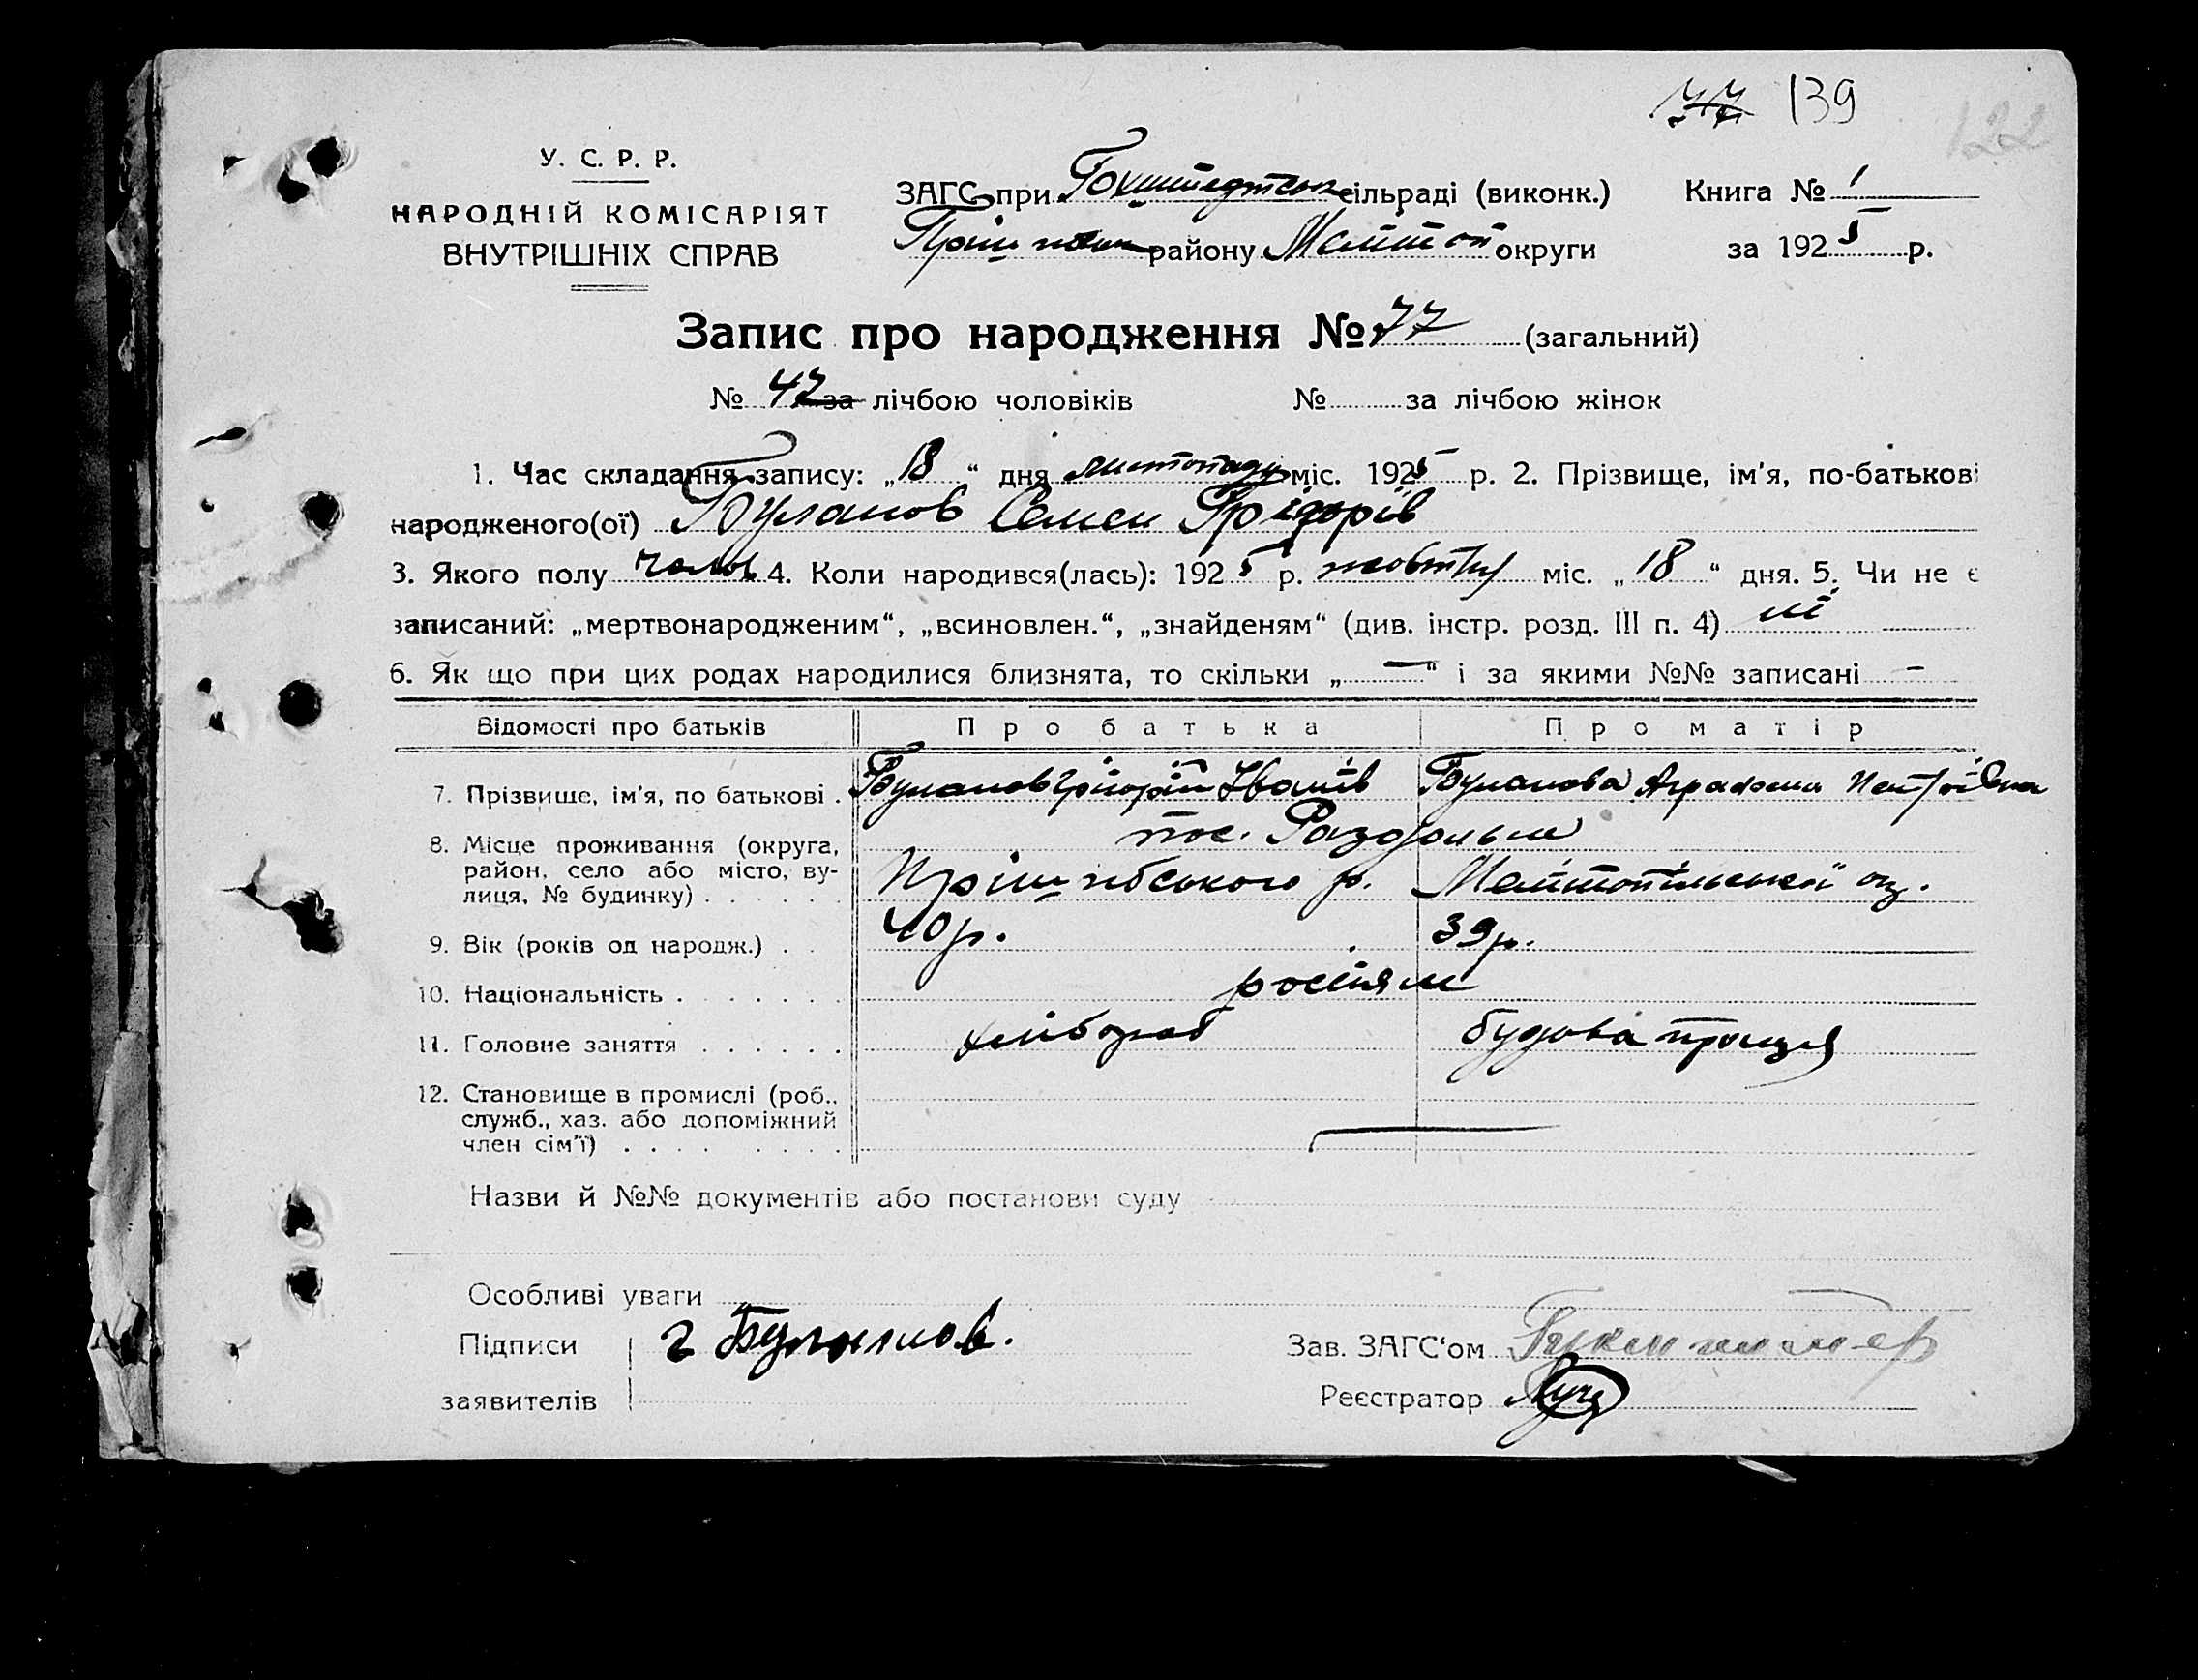 77 139 122
У. С. Р. Р.
НАРОДНІЙ КОМІСАРІЯТ
ВНУТРІШНІХ СПРАВ
ЗАГС при Гохштедтськ сільраді (виконк.) Книга № 1
району Меліт оп округи за 1925 р.
Запис про народження № 77 (загальний)
№ 42 за лічбою чоловіків № за лічбою жінок
1. Час складання запису: „18“ дня листопаду міс. 1925 р. 2. Прізвище, ім'я, по-батькові
народженого(ої) Буланов Семен Грігорів
3. Якого полу чолов 4. Коли народився(лась): 1925 р. жовтня міс. „18“ дня. 5. Чи не є
записаний: „мертвонародженим“, „всиновлен.“, „знайденям“ (див. інстр. розд. III п. 4) ні
6. Як що при цих родах народилися близнята, то скільки „—“ і за якими №№ записані —
Відомості про батьків Про батька Про матір
7. Прізвище, ім'я, по батькові . Буланов Грігорій Іванів Буланова Аграфена Петрівна
пос. Раздольне
8. Місце проживання (округа,
район, село або місто, ву-
лиця, № будинку) . . . . . . Прішибського р. Мелітопільської ок.
9. Вік (років од народж.) . . 40 р. 39 р.
10. Національність . . . . . . . росіян
11. Головне заняття . . . . . . хлібороб будова праця
12. Становище в промислі (роб.,
служб., хаз. або допоміжний
член сім'ї) . . . . . . . .
Назви й №№ документів або постанови суду
Особливі уваги
Підписи Г Буланов. Зав. ЗАГС'ом
заявителів Реєстратор